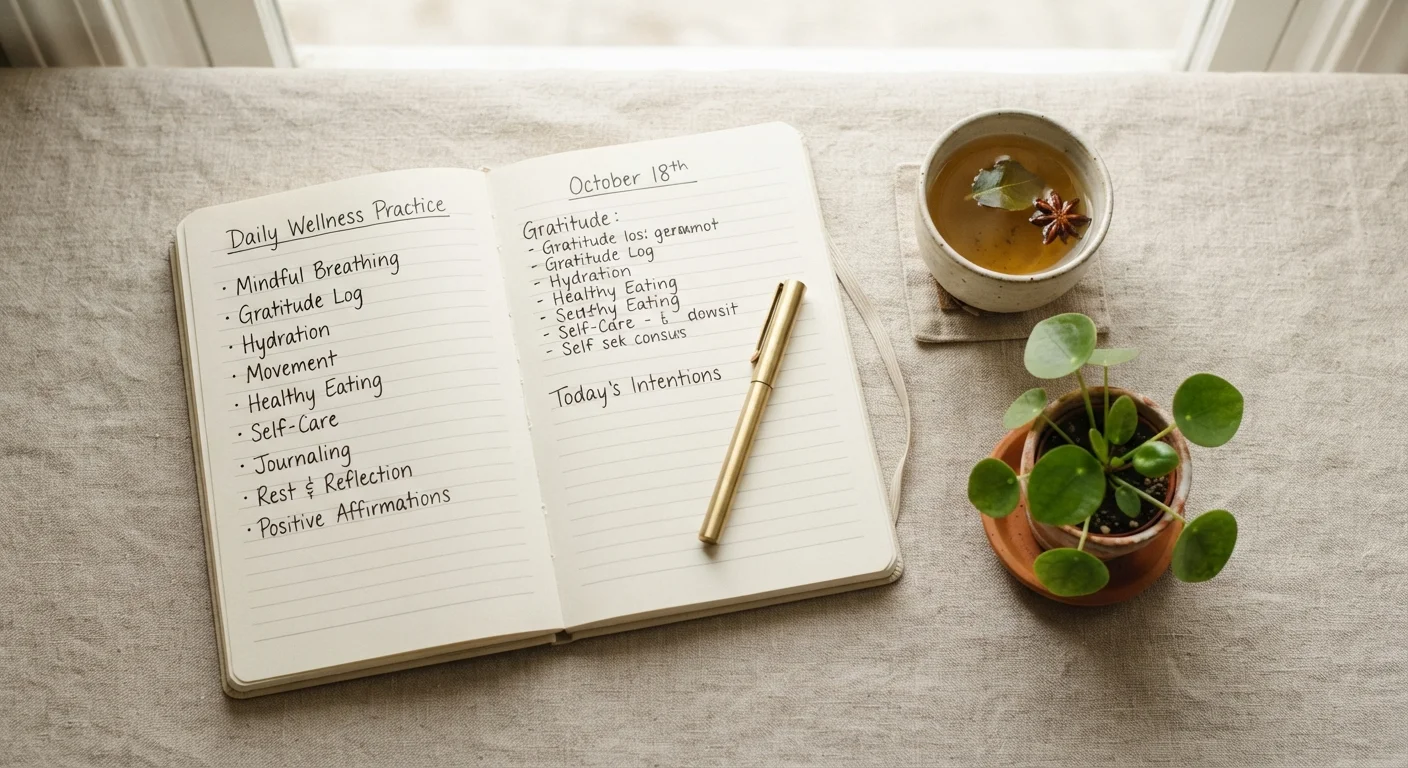 Daily Wellness Practice
· Mindful Breathing
· Gratitude Log
· Hydration
· Movement
· Healthy Eating
· Self-Care
· Journaling
· Rest & Reflection
· Positive Affirmations
October 18th
Gratitude:
- Gratitude
- Gratitude Log
- Hydration
- Healthy Eating
- Eating
- Self-Care - dowsit
- Self sek
Today's Intentions